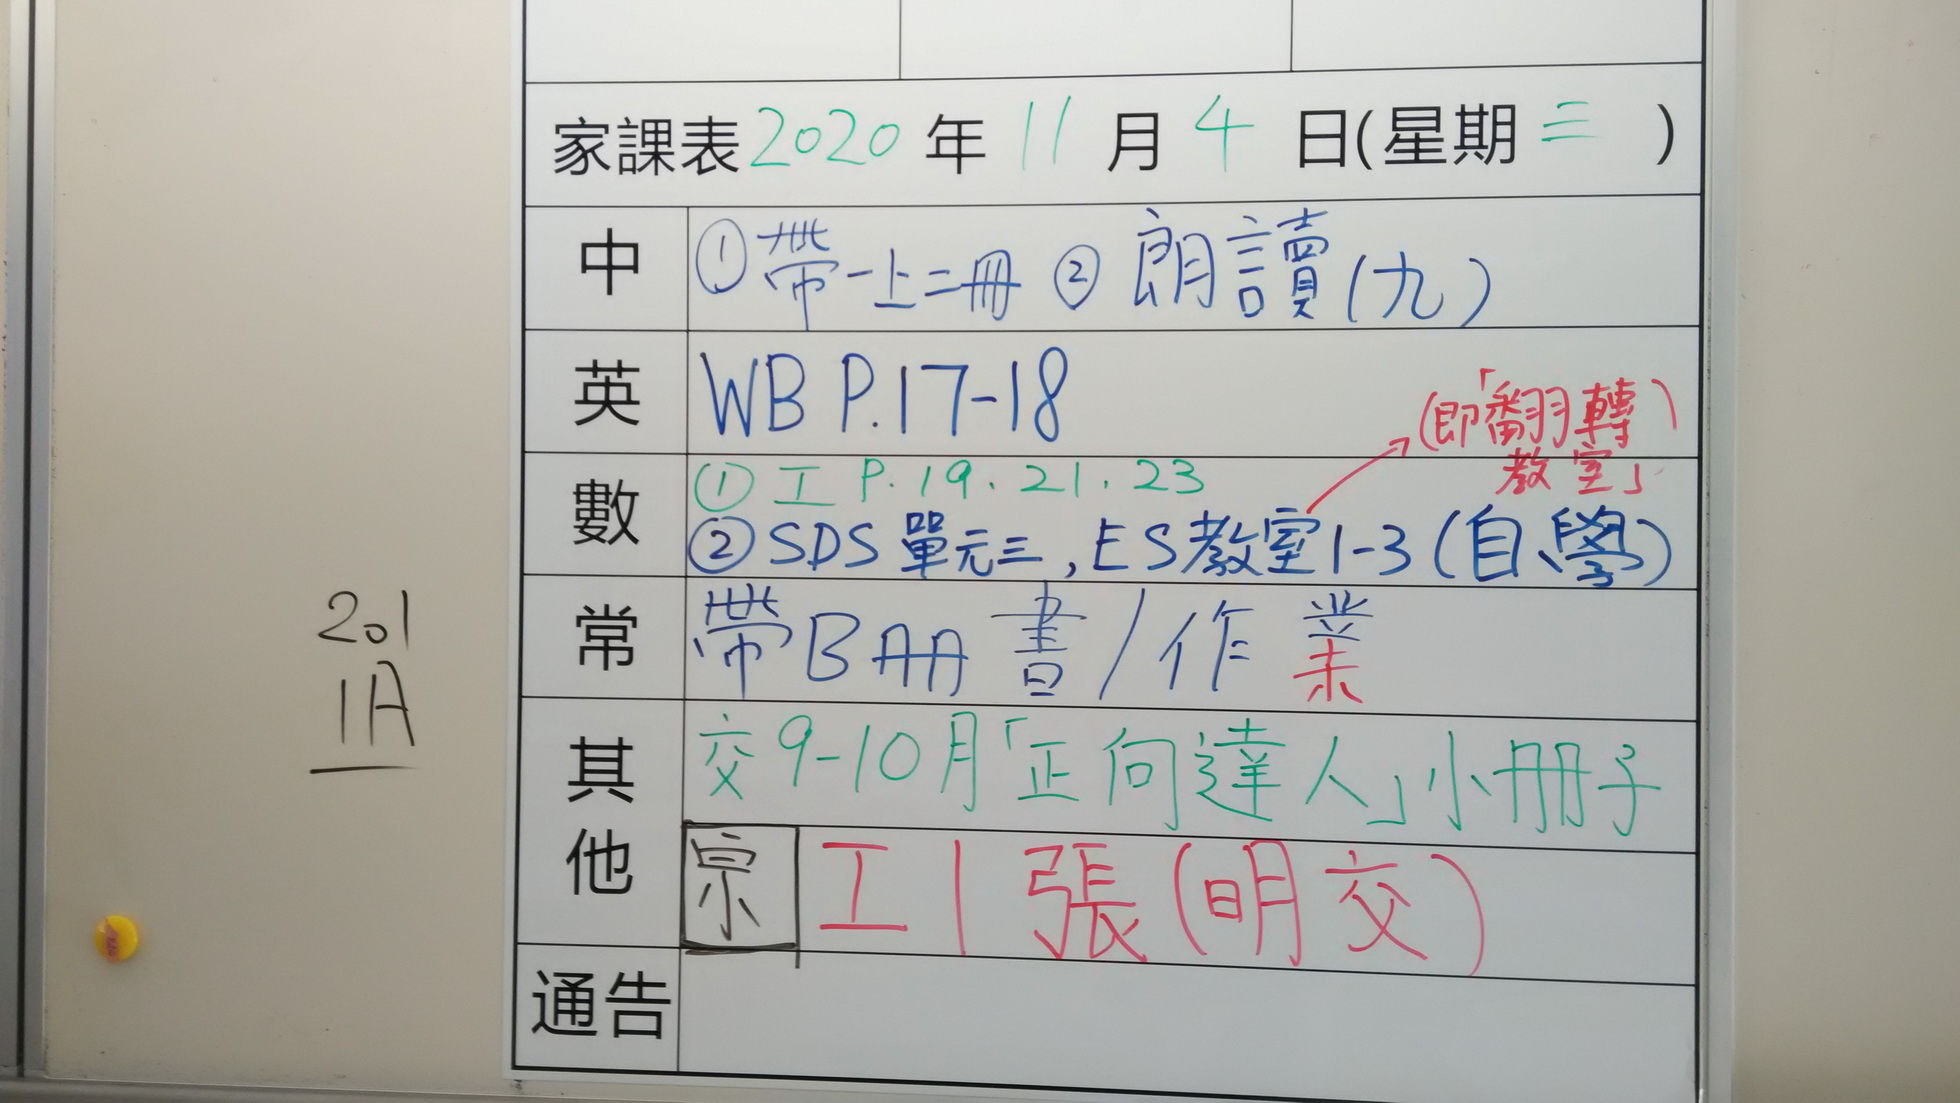 家課表2020年11月4日(星期三)
中 ①帶一上二冊 ②朗讀(九)
英 WB P.17-18
(即「翻轉
教室」)
數 ①工 P.19.21.23
②SDS單元三,ES教室1-3(自學)
常 帶BAA書/作業
其他 交9-10月「正向達人」小冊子
宗 工1張(明交)
通告
201
1A